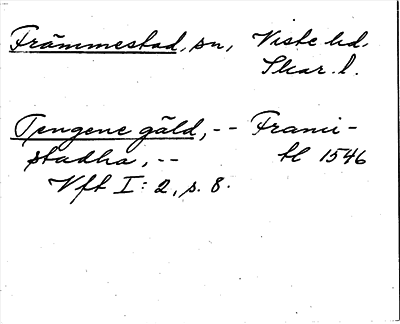 Främmestad, sn, Viste hd.
Skar. l.
Tengene gäld, -- Frami-
stadha, -- tl 1546
Vft I: 2, s. 8.